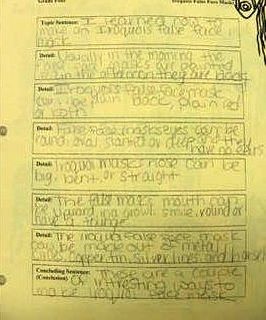 Grade Four Iroquois False Face Masks
Topic Sentence: I learned how to
make an Iroquois false face
mask
Detail: Usually in the morning the
masks are painted
red in the afternoon they are black
Detail: Iroquois false face mask
can be plain black, plain red
or both
Detail: False face masks eyes can be
round oval slanted or deep set
have no ears
Detail: Iroquai masks nose can be
big, bent or straight
Detail: The false masks mouth can
be in a growl smile, round or
have a tounge
Detail: The Iroquia false face mask
can be made out of metal
copper tin, silver lines and horse
Concluding Sentence: These are a couple
(Conclusion) of intresting ways to
make face mask